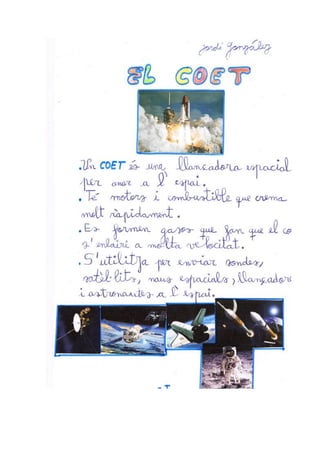 Jordi González
EL COET
.Un COET és una llançadora espacial
per anar a l'espai.
.Té motors i combustible que crema
molt ràpidament.
.Es formen gasos que fan que el co
s'enlairi a molta velocitat.
.S'utilitza per enviar sondes,
satèl·lits, naus espacials, llançadors
i astronautes a l'espai.